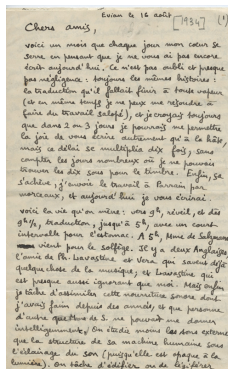 Evian le 16 août
[1934] (1)
Chers amis,
voici un mois que chaque jour mon cœur se
serre en pensant que je ne vous ai pas encore
écrit aujourd'hui. Ce n'est pas oubli et presque
pas négligence : toujours les mêmes histoires :
la traduction qu'il fallait finir à toute vapeur
(et en même temps je ne peux me résoudre à
faire du travail salopé), et je croyais toujours
que dans 2 ou 3 jours je pourrais me permettre
la joie de vous écrire autrement qu'à la hâte,
mais ce délai se multiplia dix fois, sans
compter les jours nombreux où je ne pouvais
trouver les dix sous pour le timbre. Enfin, ça
s'achève, j'envoie le travail à Parrain par
morceaux, et aujourd'hui je vous écrirai.
voici la vie qu'on mène : vers 9h, réveil, et dès
9h½, traduction, jusqu'à 5h, avec un court
intervalle pour l'estomac. A 5h, Mme de Salzmann
vient pour le solfège. Il y a deux Anglaises,
l'amie de Ph. Lavastine et Vera qui savent déjà
quelque chose de la musique, et Lavastine qui
est presque aussi ignorant que moi. Mais enfin
je tâche d'assimiler cette nourriture sonore dont
j'avais faim depuis des années, et que personne
d'autre que Mme de S. ne pouvait me donner
intelligemment. On étudie moins les sons externes
que la structure de sa machine humaine sous
l'éclairage du son (puisqu'elle est opaque à la
lumière). On tâche d'édifier ou de